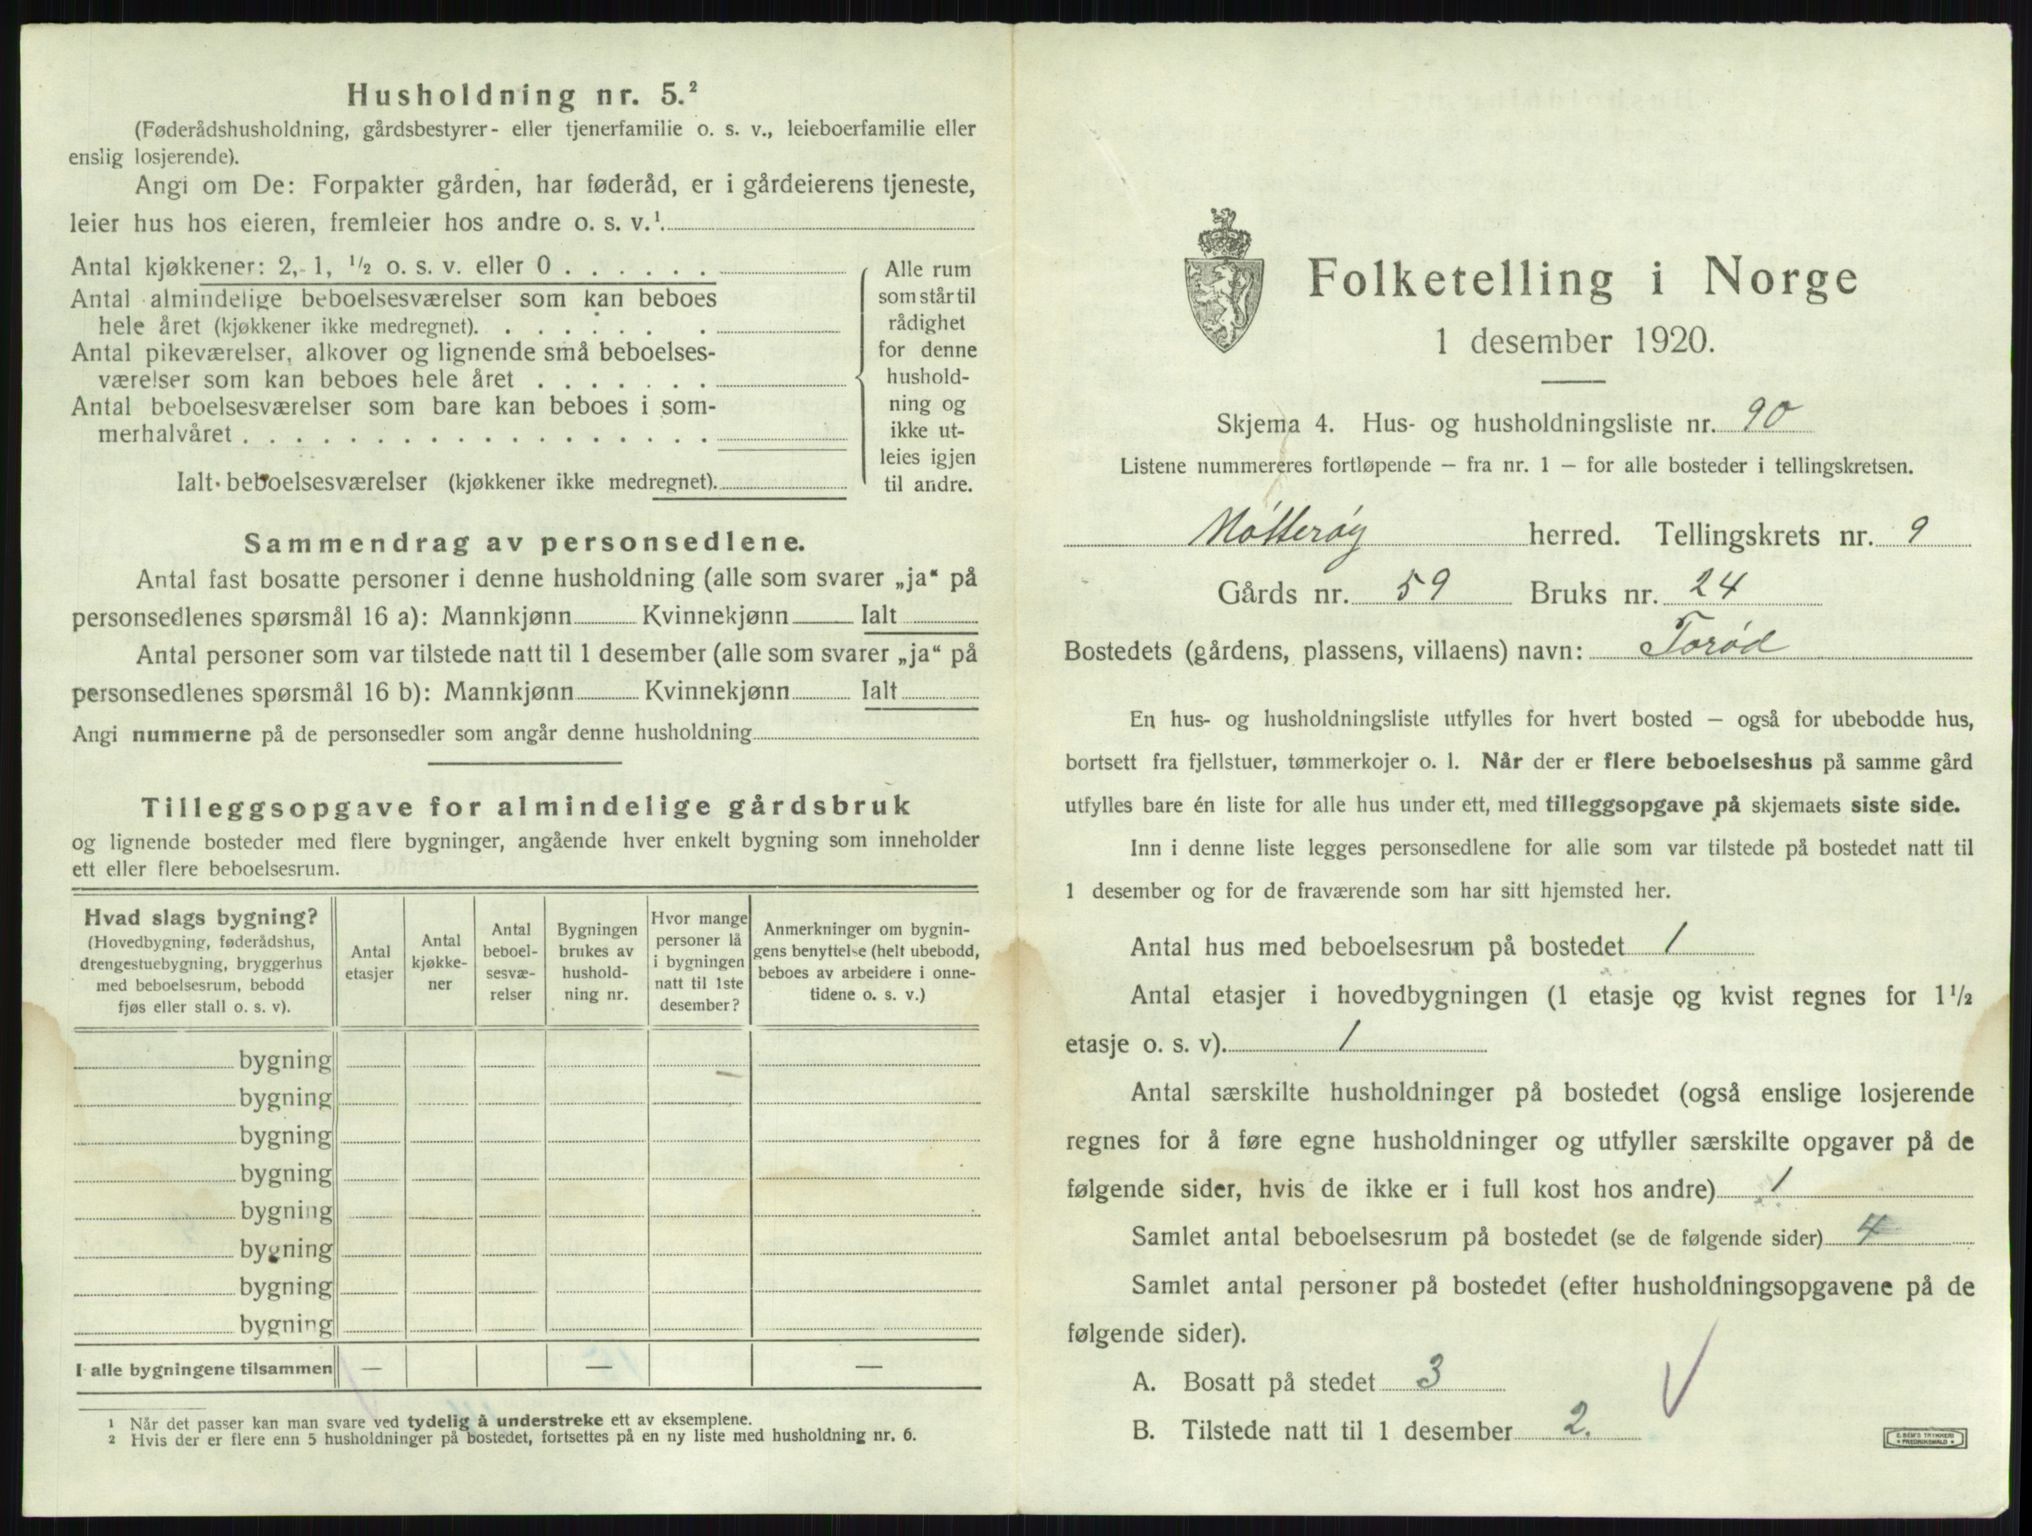 Husholdning nr. 5.²
(Føderådshusholdning, gårdsbestyrer- eller tjenerfamilie o. s. v., leieboerfamilie eller
enslig losjerende).
Angi om De: Forpakter gården, har føderåd, er i gårdeierens tjeneste,
leier hus hos eieren, fremleier hos andre o. s. v.¹
Antal kjøkkener: 2, 1, ½ o. s. v. eller 0 . . . . . .
Antal almindelige beboelsesværelser som kan beboes
hele året (kjøkkener ikke medregnet). . . . . . . .
Antal pikeværelser, alkover og lignende små beboelses-
værelser som kan beboes hele året . . . . . . .
Antal beboelsesværelser som bare kan beboes i som-
merhalvåret . . . . . . . . . . . . . . . . . .
Ialt beboelsesværelser (kjøkkener ikke medregnet).
Alle rum
som står til
rådighet
for denne
hushold-
ning og
ikke ut-
leies igjen
til andre.
Sammendrag av personsedlene.
Antal fast bosatte personer i denne husholdning (alle som svarer „ja“ på
personsedlenes spørsmål 16 a): Mannkjønn Kvinnekjønn Ialt
Antal personer som var tilstede natt til 1 desember (alle som svarer „ja“ på
personsedlenes spørsmål 16 b): Mannkjønn Kvinnekjønn Ialt
Angi nummerne på de personsedler som angår denne husholdning
Tilleggsopgave for almindelige gårdsbruk
og lignende bosteder med flere bygninger, angående hver enkelt bygning som inneholder
ett eller flere beboelsesrum.
Hvad slags bygning?
(Hovedbygning, føderådshus,
drengestuebygning, bryggerhus
med beboelsesrum, bebodd
fjøs eller stall o. s. v).
Antal
etasjer
Antal
kjøkke-
ner
Antal
beboel-
sesvæ-
relser
Bygningen
brukes av
hushold-
ning nr.
Hvor mange
personer lå
i bygningen
natt til 1ste
desember?
Anmerkninger om bygnin-
gens benyttelse (helt ubebodd,
beboes av arbeidere i onne-
tidene o. s. v.)
bygning
bygning
bygning
bygning
bygning
bygning
bygning
bygning
I alle bygningene tilsammen — — —
¹ Når det passer kan man svare ved tydelig å understreke ett av eksemplene.
² Hvis der er flere enn 5 husholdninger på bostedet, fortsettes på en ny liste med husholdning nr. 6.
Folketelling i Norge
1 desember 1920.
Skjema 4. Hus- og husholdningsliste nr. 90
Listene nummereres fortløpende – fra nr. 1 – for alle bosteder i tellingskretsen.
Nøtterøy herred. Tellingskrets nr. 9
Gårds nr. 59 Bruks nr. 24
Bostedets (gårdens, plassens, villaens) navn: Torød
En hus- og husholdningsliste utfylles for hvert bosted – også for ubebodde hus,
bortsett fra fjellstuer, tømmerkojer o. l. Når der er flere beboelseshus på samme gård
utfylles bare én liste for alle hus under ett, med tilleggsopgave på skjemaets siste side.
Inn i denne liste legges personsedlene for alle som var tilstede på bostedet natt til
1 desember og for de fraværende som har sitt hjemsted her.
Antal hus med beboelsesrum på bostedet 1
Antal etasjer i hovedbygningen (1 etasje og kvist regnes for 1½
etasje o. s. v). 1
Antal særskilte husholdninger på bostedet (også enslige losjerende
regnes for å føre egne husholdninger og utfyller særskilte opgaver på de
følgende sider, hvis de ikke er i full kost hos andre) 1
Samlet antal beboelsesrum på bostedet (se de følgende sider) 4
Samlet antal personer på bostedet (efter husholdningsopgavene på de
følgende sider).
A. Bosatt på stedet 3
B. Tilstede natt til 1 desember 2.
E. SEM'S TRYKKERI
FREDRIKSHALD